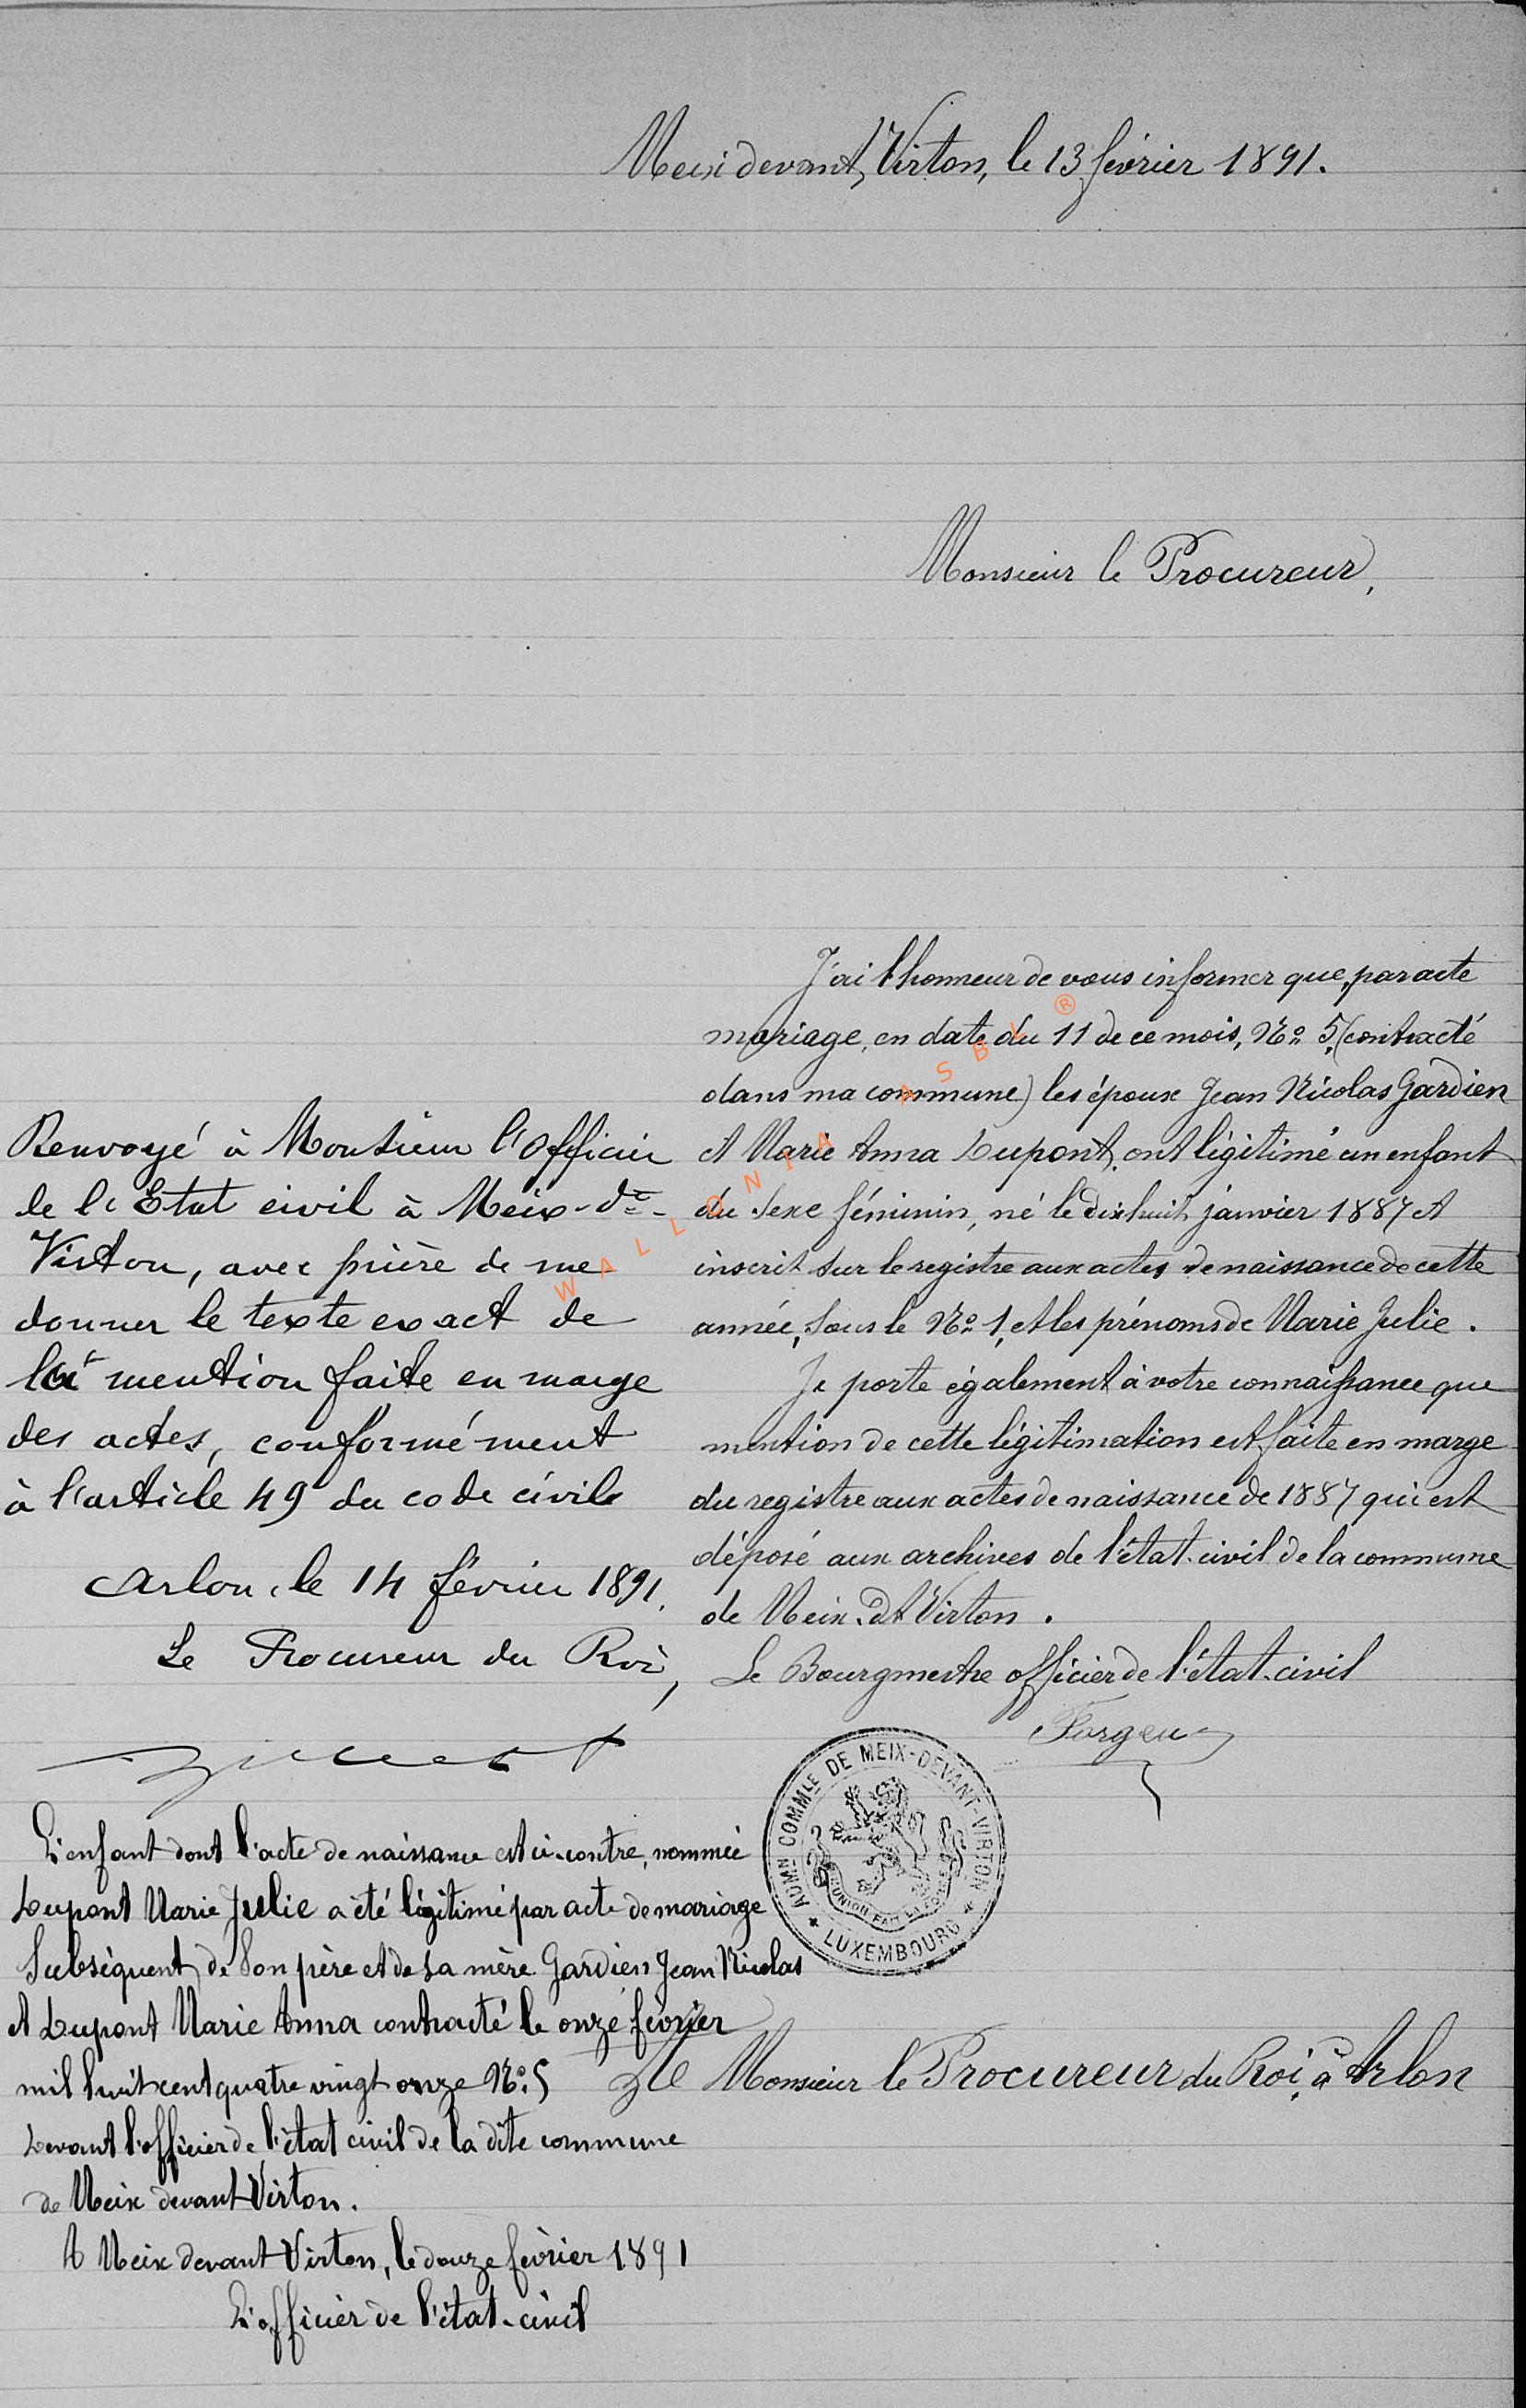 Meix devant Virton, le 13 février 1891.
Monsieur le Procureur,
J'ai l'honneur de vous informer que, par acte
mariage, en date du 11 de ce mois, No 5, (contracté
dans ma commune) les époux Jean Nicolas Gardien
et Marie Anna Dupont, ont légitimé un enfant
du sexe féminin, né le dix huit janvier 1887 et
inscrit sur le registre aux actes de naissance de cette
année, sous le No 1, et les prénoms de Marie Julie.
Je porte également à votre connaissance que
mention de cette légitimation est faite en marge
du registre aux actes de naissance de 1887 qui est
déposé aux archives de l'état-civil de la commune
de Meix-dt Virton.
Le Bourgmestre officier de l'état-civil
ADMon COMMLE DE MEIX-DEVANT-VIRTON
L'UNION FAIT LA FORCE
* LUXEMBOURG *
Monsieur le Procureur du Roi, à Arlon
Renvoyé à Monsieur l'Officier
de l'Etat civil à Meix-dt-
Virton, avec prière de me
donner le texte exact de
la mention faite en marge
des actes, conformément
à l'article 49 du code civil
Arlon, le 14 février 1891.
Le Procureur du Roi,
L'enfant dont l'acte de naissance est ci-contre, nommée
Dupont Marie Julie a été légitimé par acte de mariage
Subséquent de son père et de sa mère Gardien Jean Nicolas
et Dupont Marie Anna contracté le onze février
mil huit cent quatre vingt onze No 5
Devant l'officier de l'état civil de la dite commune
de Meix devant Virton.
A Meix devant Virton, le douze février 1891
L'officier de l'état-civil
WALLONIA ASBL ®